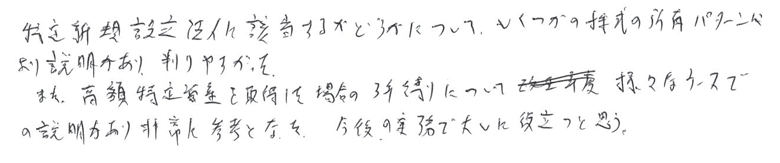 特定新規設立法人に該当するかどうかについて、いくつかの株式の所有パターンに
より説明があり、判りやすかった。
また、高額特定資産を取得した場合の3年縛りについて 様々なケースで
の説明があり非常に参考となった。今後の実務で大いに役立つと思う。